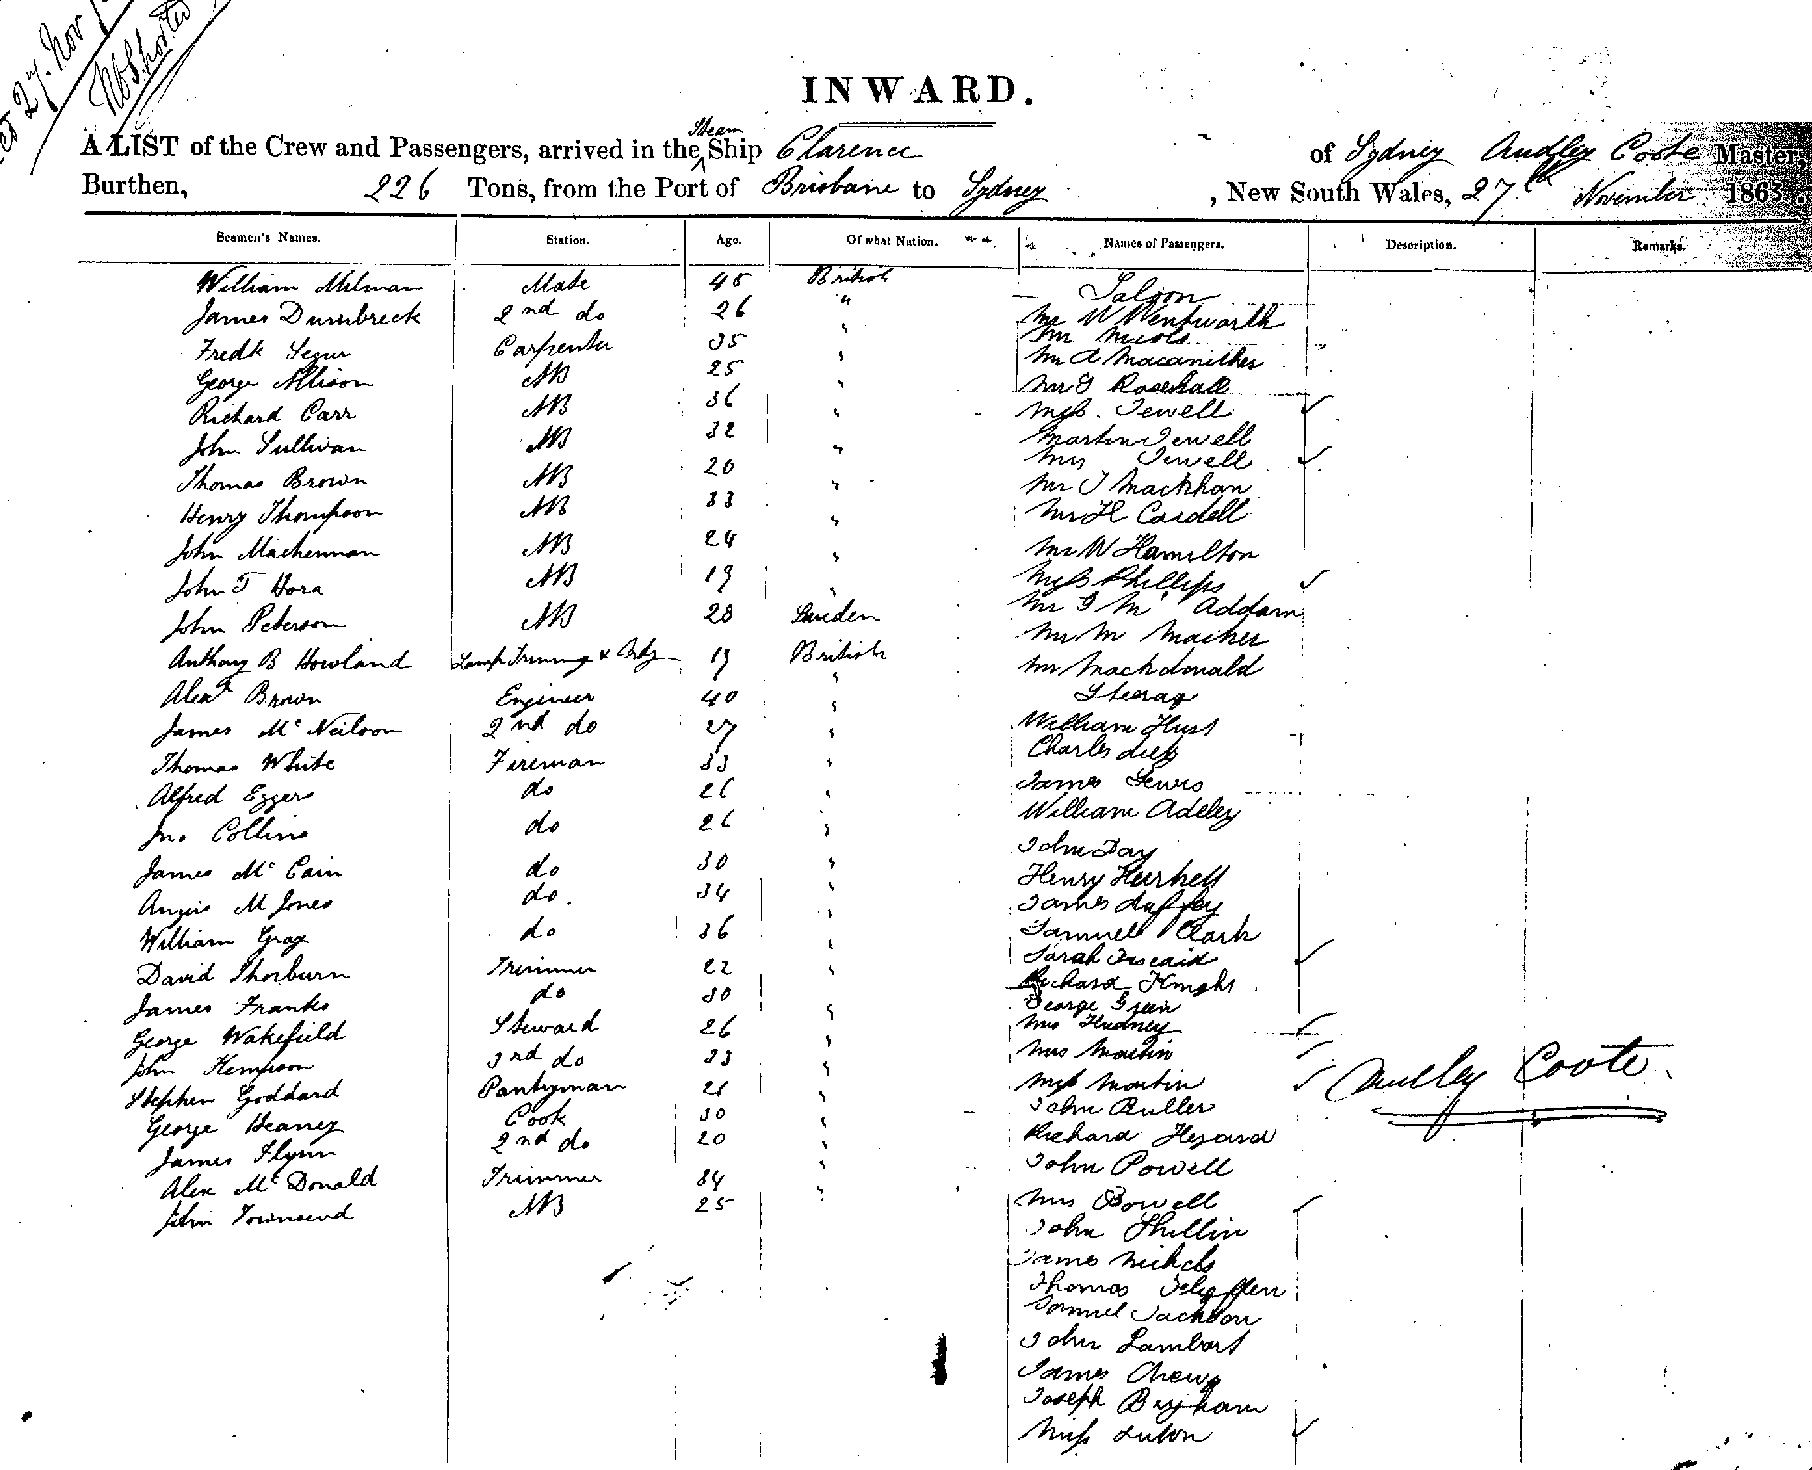 27. Nov
INWARD.
Steam
A LIST of the Crew and Passengers, arrived in the Ship Clarence of Sydney Audley Coote Master,
Burthen, 226 Tons, from the Port of Brisbane to Sydney, New South Wales, 27th November 1863.
Seamen's Names. Station. Age. Of what Nation. Names of Passengers. Description. Remarks.
William Milman Mate 45 British
James Dumbreck 2nd do 26 "
Fredk Segur Carpenter 35 "
George Allison AB 25 "
Richard Carr AB 36 "
John Sullivan AB 32 "
Thomas Brown AB 20 "
Henry Thompson AB 33 "
John Mackennan AB 24 "
John T Hora AB 19 "
John Peterson AB 28 Sweden
Anthony B Howland Lamp Trimmer & 19 British
Alexr Brown Engineer 40 "
James Mc Neilson 2nd do 27 "
Thomas White Fireman 33 "
Alfred Eggers do 26 "
Jno Collins do 26 "
James Mc Cain do 30 "
Angus M Jones do. 34 "
William Gray do 36 "
David Thorburn Trimmer 22 "
James Franks do 30 "
George Wakefield Steward 26 "
John Kempson 3rd do 23 "
Stephen Goddard Pantryman 21 "
George Heaney Cook 30 "
James Flynn 2nd do 20 "
Alex Mc Donald Trimmer 34 "
John Townsend AB 25
Saloon
Mr W Wentworth
Mr Nicols
Mr A Macanither
Mr Rosehall
Miss Jewell
Martin Jewell
Mrs Jewell
Mr J Mackhan
Mr H Cardell
Mr W Hamilton
Miss Phillips
Mr Mc Addam
Mr M Macher
Mr Mackdonald
Steerag
William Hust
Charles
James Lewis
William Adeley
John Fay
Henry
James Duffey
Samuel Clark
Sarah
Richard Knight
George Green
Mrs Hudney
Mrs Martin
Miss Martin
John Buller
Richard
John Powell
Mrs Powell
John Shillin
James Nichols
Thomas
Samuel Jackson
John Lambert
James Chewg
Joseph Brigham
Miss Luton
Audley Coote.